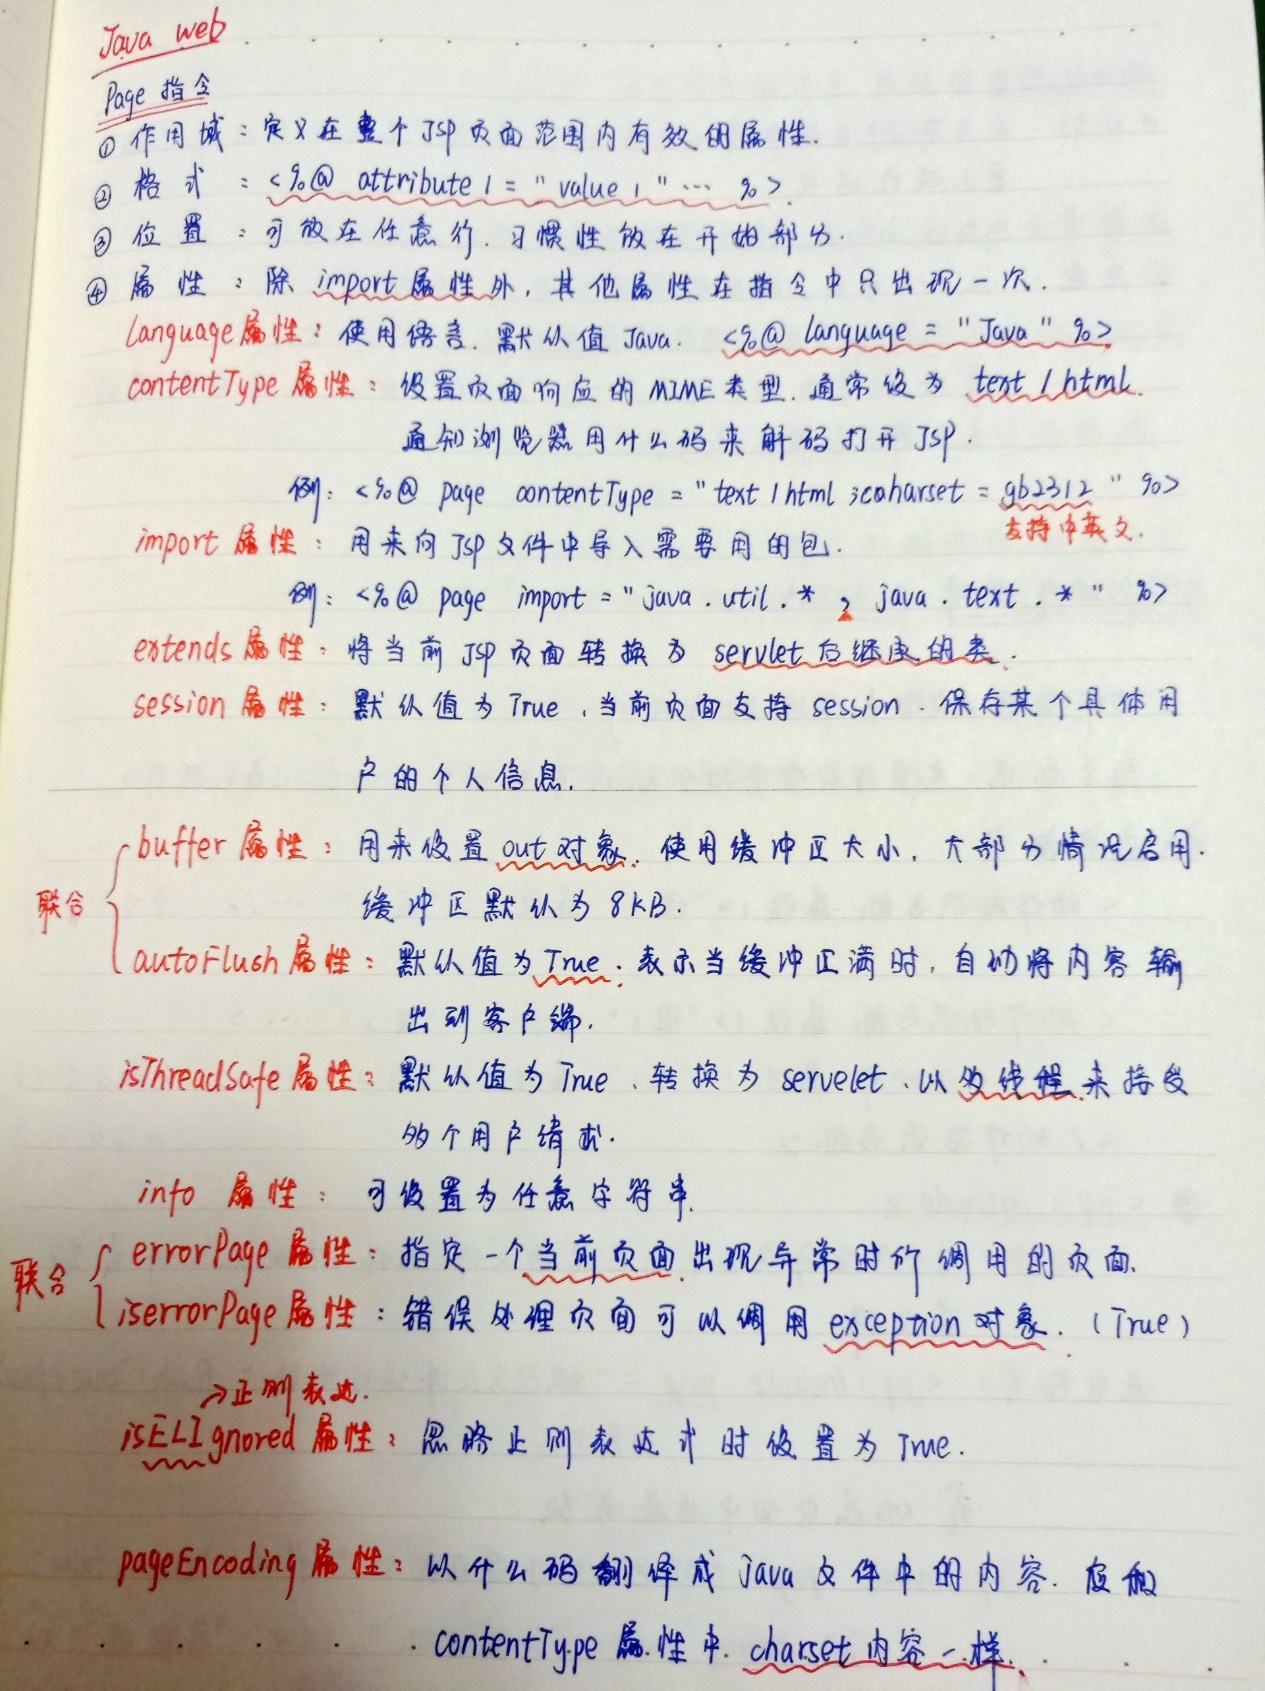 Java web
Page 指令
① 作用域：定义在整个JSP页面范围内有效的属性.
② 格式：<%@ attribute1="value1"… %>.
③ 位置：可放在任意行.习惯性放在开始部分.
④ 属性：除import属性外,其他属性在指令中只出现一次.
language属性：使用语言.默认值Java. <%@ language="Java" %>
contentType属性：设置页面响应的MIME类型.通常设为text/html.
通知浏览器用什么码来解码打开JSP.
例：<%@ page contentType="text/html;coharset=gb2312" %>
支持中英文.
import属性：用来向JSP文件中导入需要用的包.
例：<%@ page import="java.util.*,java.text.*" %>
extends属性：将当前JSP页面转换为servlet后继承的类.
session属性：默认值为True,当前页面支持session.保存某个具体用
户的个人信息.
联合
buffer属性：用来设置out对象.使用缓冲区大小,大部分情况启用.
缓冲区默认为8KB.
autoFlush属性：默认值为True.表示当缓冲区满时,自动将内容输
出到客户端.
isThreadSafe属性：默认值为True、转换为servelet、以多线程来接受
多个用户请求.
info属性：可设置为任意字符串.
联合
errorPage属性：指定一个当前页面出现异常时所调用的页面.
iserrorPage属性：错误处理页面可以调用exception对象.(True)
→正则表达.
isELIgnored属性：忽略正则表达式时设置为True.
pageEncoding属性：以什么码翻译成java文件中的内容.应和
contentType属性中.charset内容一样.